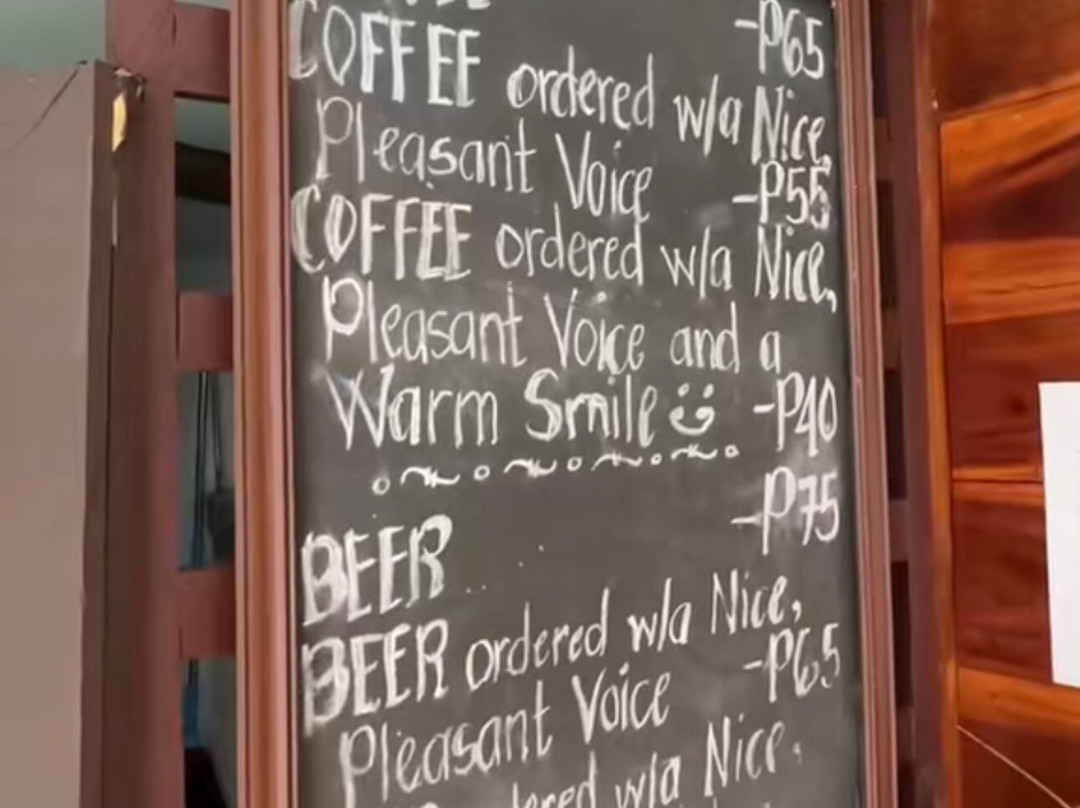 -P65
COFFEE ordered w/a Nice,
Pleasant Voice -P55
COFFEE ordered w/a Nice,
Pleasant Voice and a
Warm Smile -P40
-P75
BEER
BEER ordered w/a Nice,
Pleasant Voice -P65
w/a Nice,